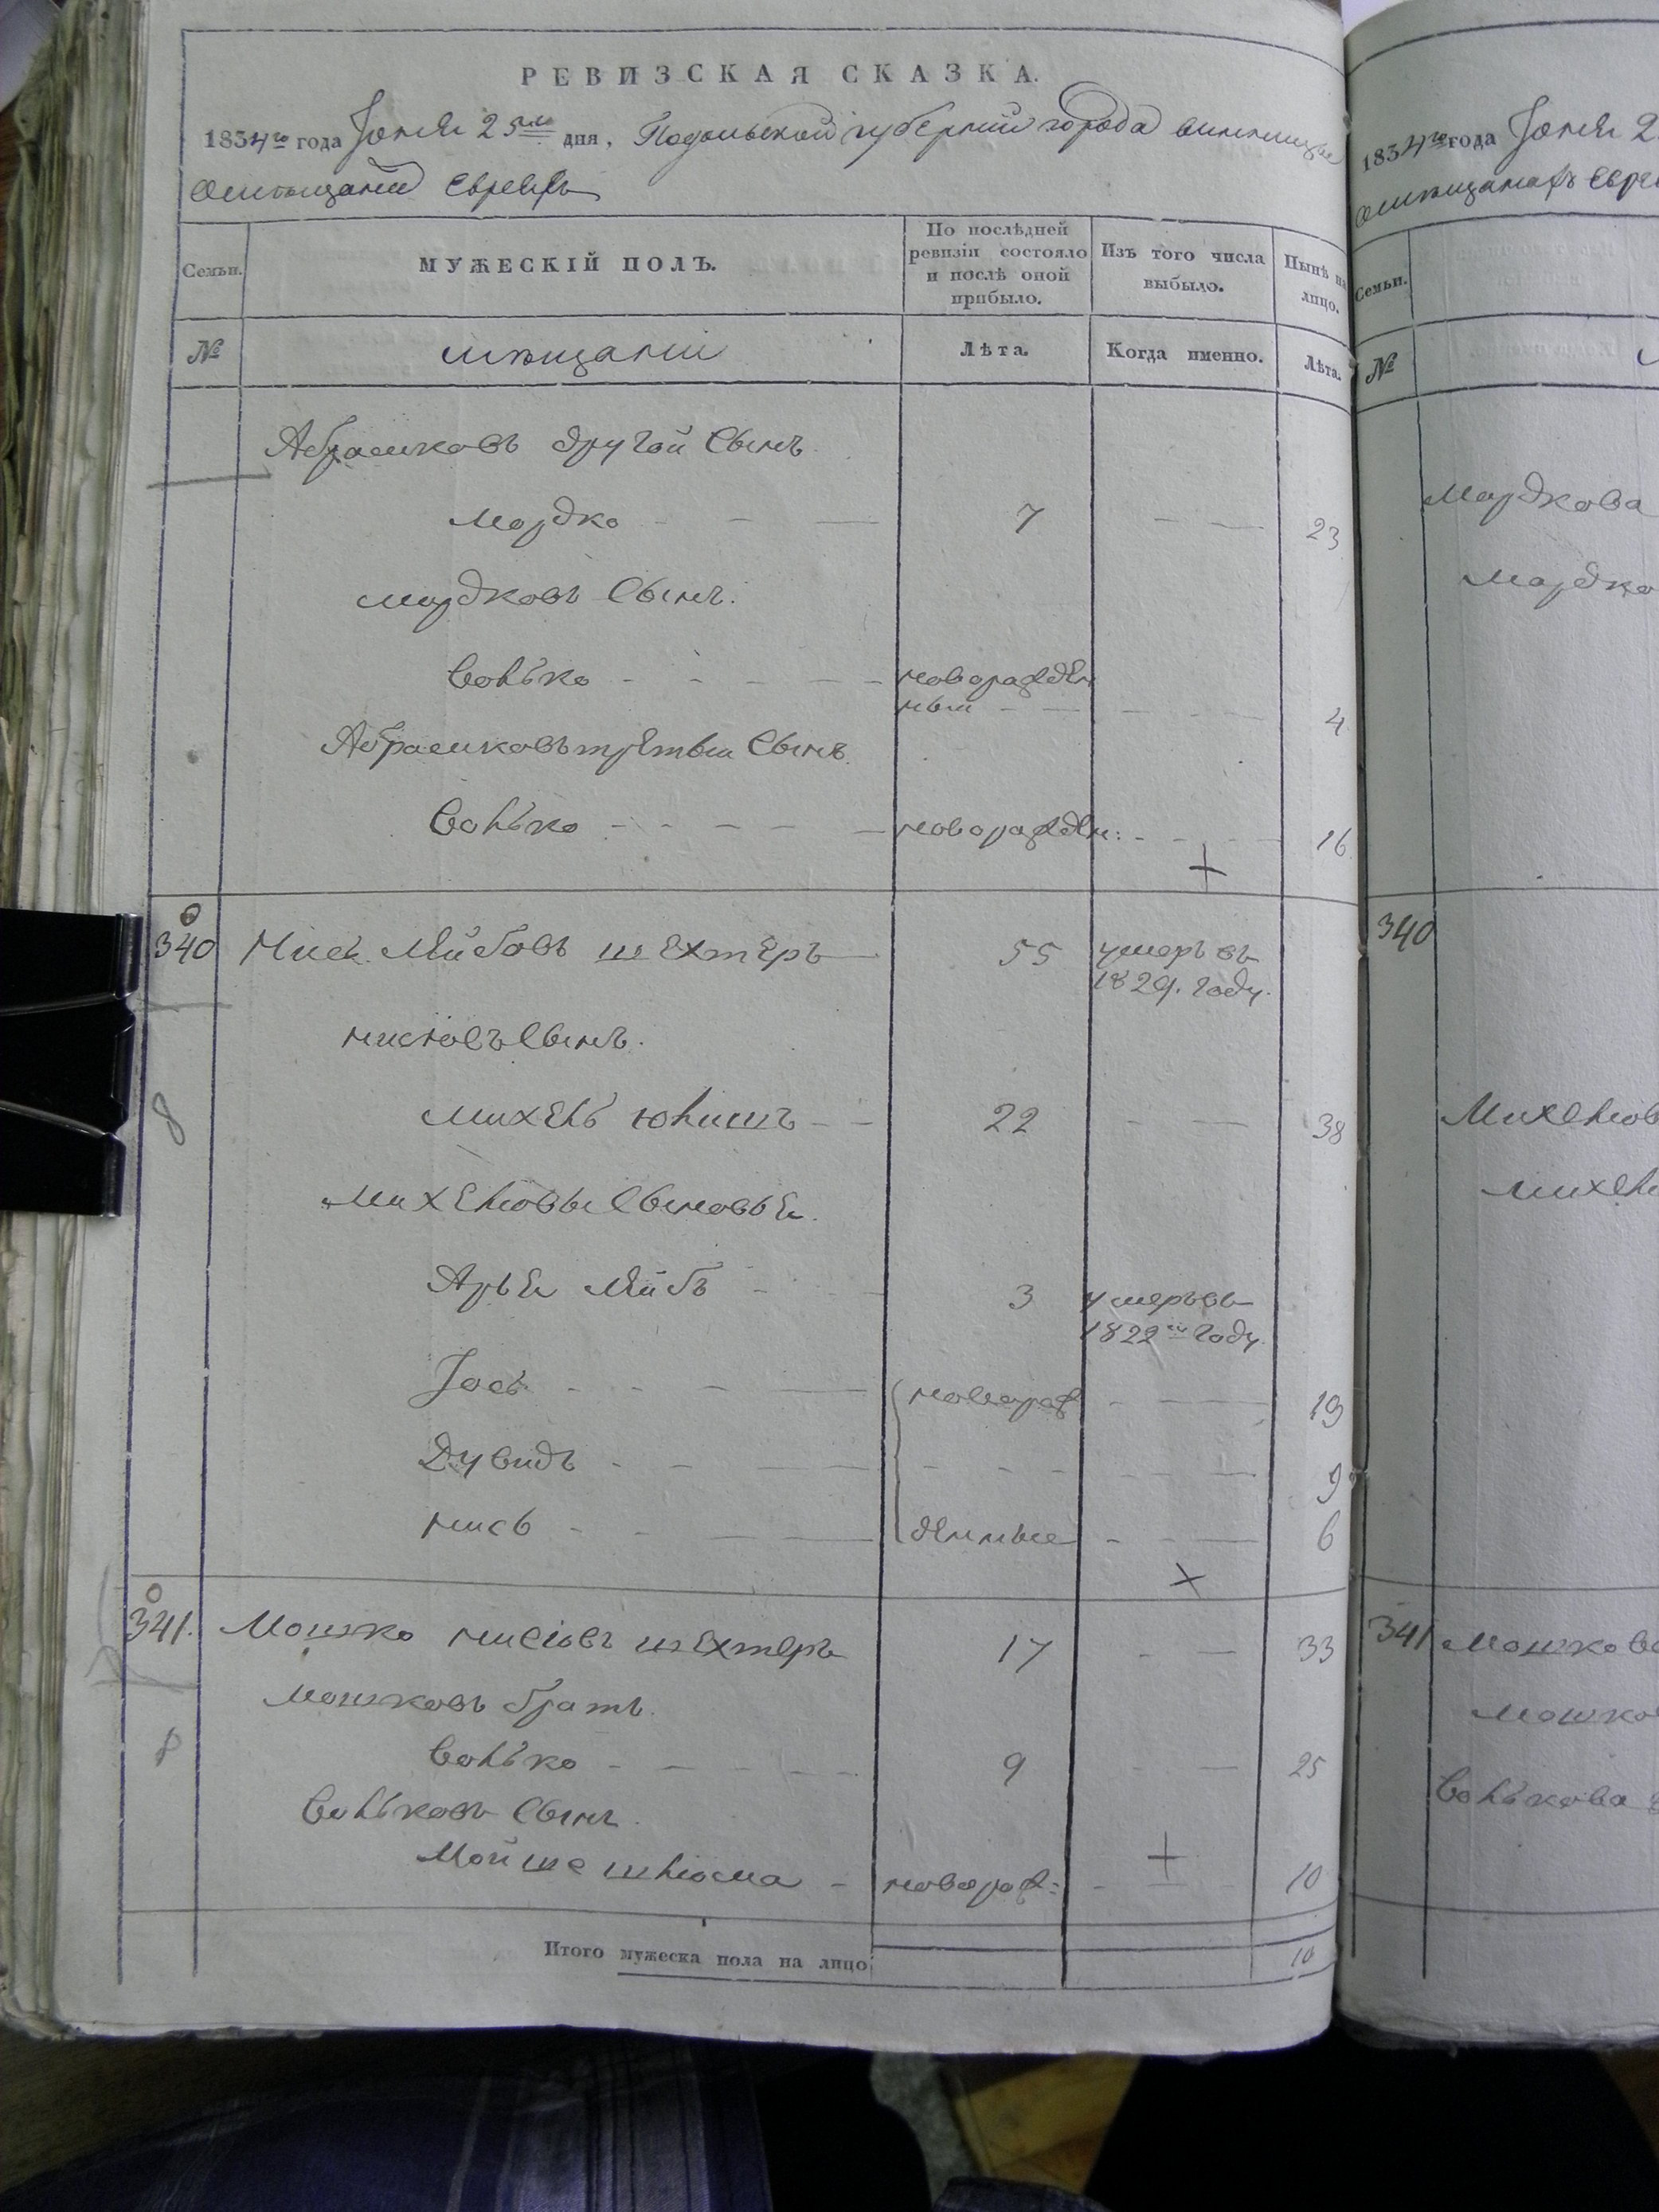 РЕВИЗСКАЯ СКАЗКА.
1834го года Іюня 25го дня, Подольской губерніи города винницы
о мѣщанахъ Евреяхъ
Семьи. МУЖЕСКІЙ ПОЛЪ. По послѣдней ревизіи состояло и послѣ оной прибыло. Изъ того числа выбыло. Нынѣ на лицо.
№ мѣщани Лѣта. Когда именно. Лѣта.
Абрамковъ другой Сынъ
Мордко 7 23
мордковъ Сынъ.
Волько новорожден
ный 4
Абрамковъ третьи Сынъ
Волько новорожден: 16
340 Нись Лейбовъ шехтеръ 55 умеръ въ
1829. году.
нисювъ Сынъ.
михель юлишъ 22 38
8
михелювы Сыновья.
Арье Лейбъ 3 умеръ въ
1822м году
Іось новорож 19
Дувидъ 9
нись денные 6
341. Мошко нисювъ шехтеръ 17 33
мошковъ братъ
Волько 9 25
Вольковъ Сынъ
Мойше шлюма новорож: 10
Итого мужеска пола на лицо 10
1834го года Іюня 2
Семьи.
№
Мордкова
340
341
Волькова